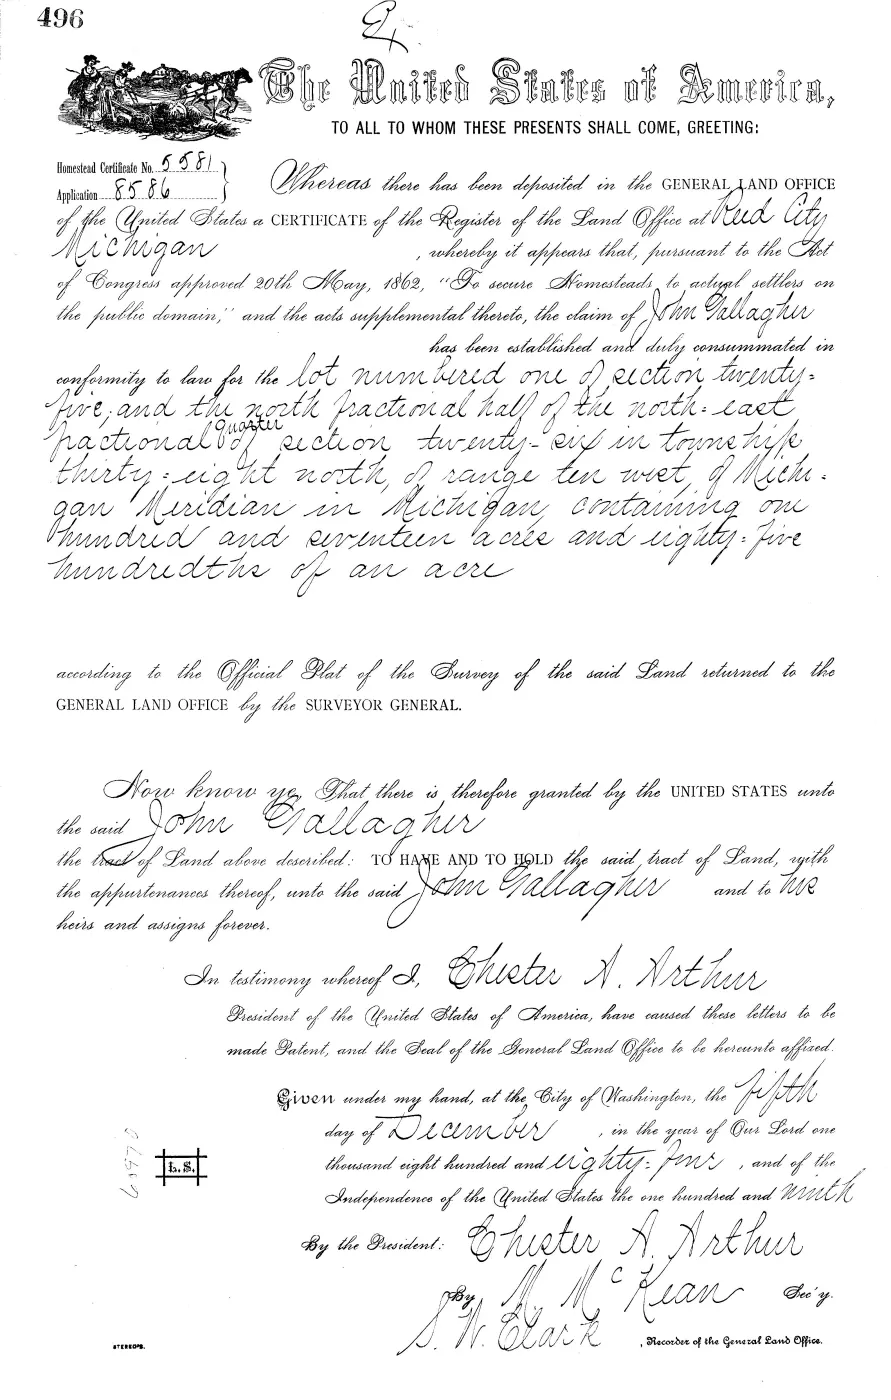 496
Ex
The United States of America,
TO ALL TO WHOM THESE PRESENTS SHALL COME, GREETING:
Homestead Certificate No. 5581
Application 8586
Whereas there has been deposited in the GENERAL LAND OFFICE
of the United States a CERTIFICATE of the Register of the Land Office at Reed City
Michigan , whereby it appears that, pursuant to the Act
of Congress approved 20th May, 1862, "To secure Homesteads to actual settlers on
the public domain," and the acts supplemental thereto, the claim of John Gallagher
has been established and duly consummated in
conformity to law for the lot numbered one of section twenty=
five, and the north fractional half of the north=east
fractional quarter of section twenty-six in township
thirty=eight north, of range ten west, of Michi=
gan Meridian in Michigan, containing one
hundred and seventeen acres and eighty=five
hundredths of an acre
according to the Official Plat of the Survey of the said Land returned to the
GENERAL LAND OFFICE by the SURVEYOR GENERAL.
Now know ye, That there is therefore granted by the UNITED STATES unto
the said John Gallagher
the tract of Land above described: TO HAVE AND TO HOLD the said tract of Land, with
the appurtenances thereof, unto the said John Gallagher and to his
heirs and assigns forever.
In testimony whereof I, Chester A. Arthur
President of the United States of America, have caused these letters to be
made Patent, and the Seal of the General Land Office to be hereunto affixed.
Given under my hand, at the City of Washington, the fifth
day of December , in the year of Our Lord one
thousand eight hundred and eighty=four , and of the
Independence of the United States the one hundred and ninth
L.S.
By the President: Chester A. Arthur
By M. McKean Sec'y.
S. W. Clark , Recorder of the General Land Office.
STEREOPS.